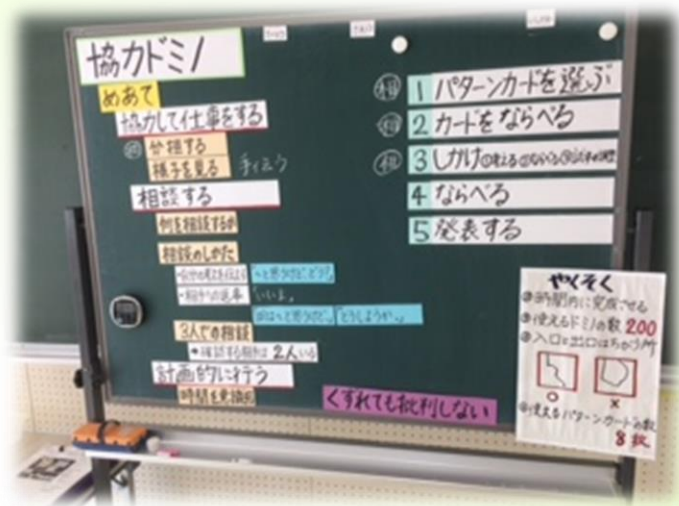 協力ドミノ
めあて
協力して仕事をする
分担する
様子を見る 手伝う
相談する
何を相談するか
相談のしかた
・自分の考えを伝える 「〜と思うけど、どう?」
・相手への返事 「いいよ。」
「〜と思うけど。」「どうしようか。」
3人での相談
相手は2人いる
計画的に行う
時間を意識
くずれても批判しない
1 パターンカードを選ぶ
2 カードをならべる
3 しかけ ①考える
4 ならべる
5 発表する
やくそく
①時間内に完成させる
②使えるドミノの数 200
③入口と出口はちがう所
○ ×
④使えるパターンカードの数
8枚